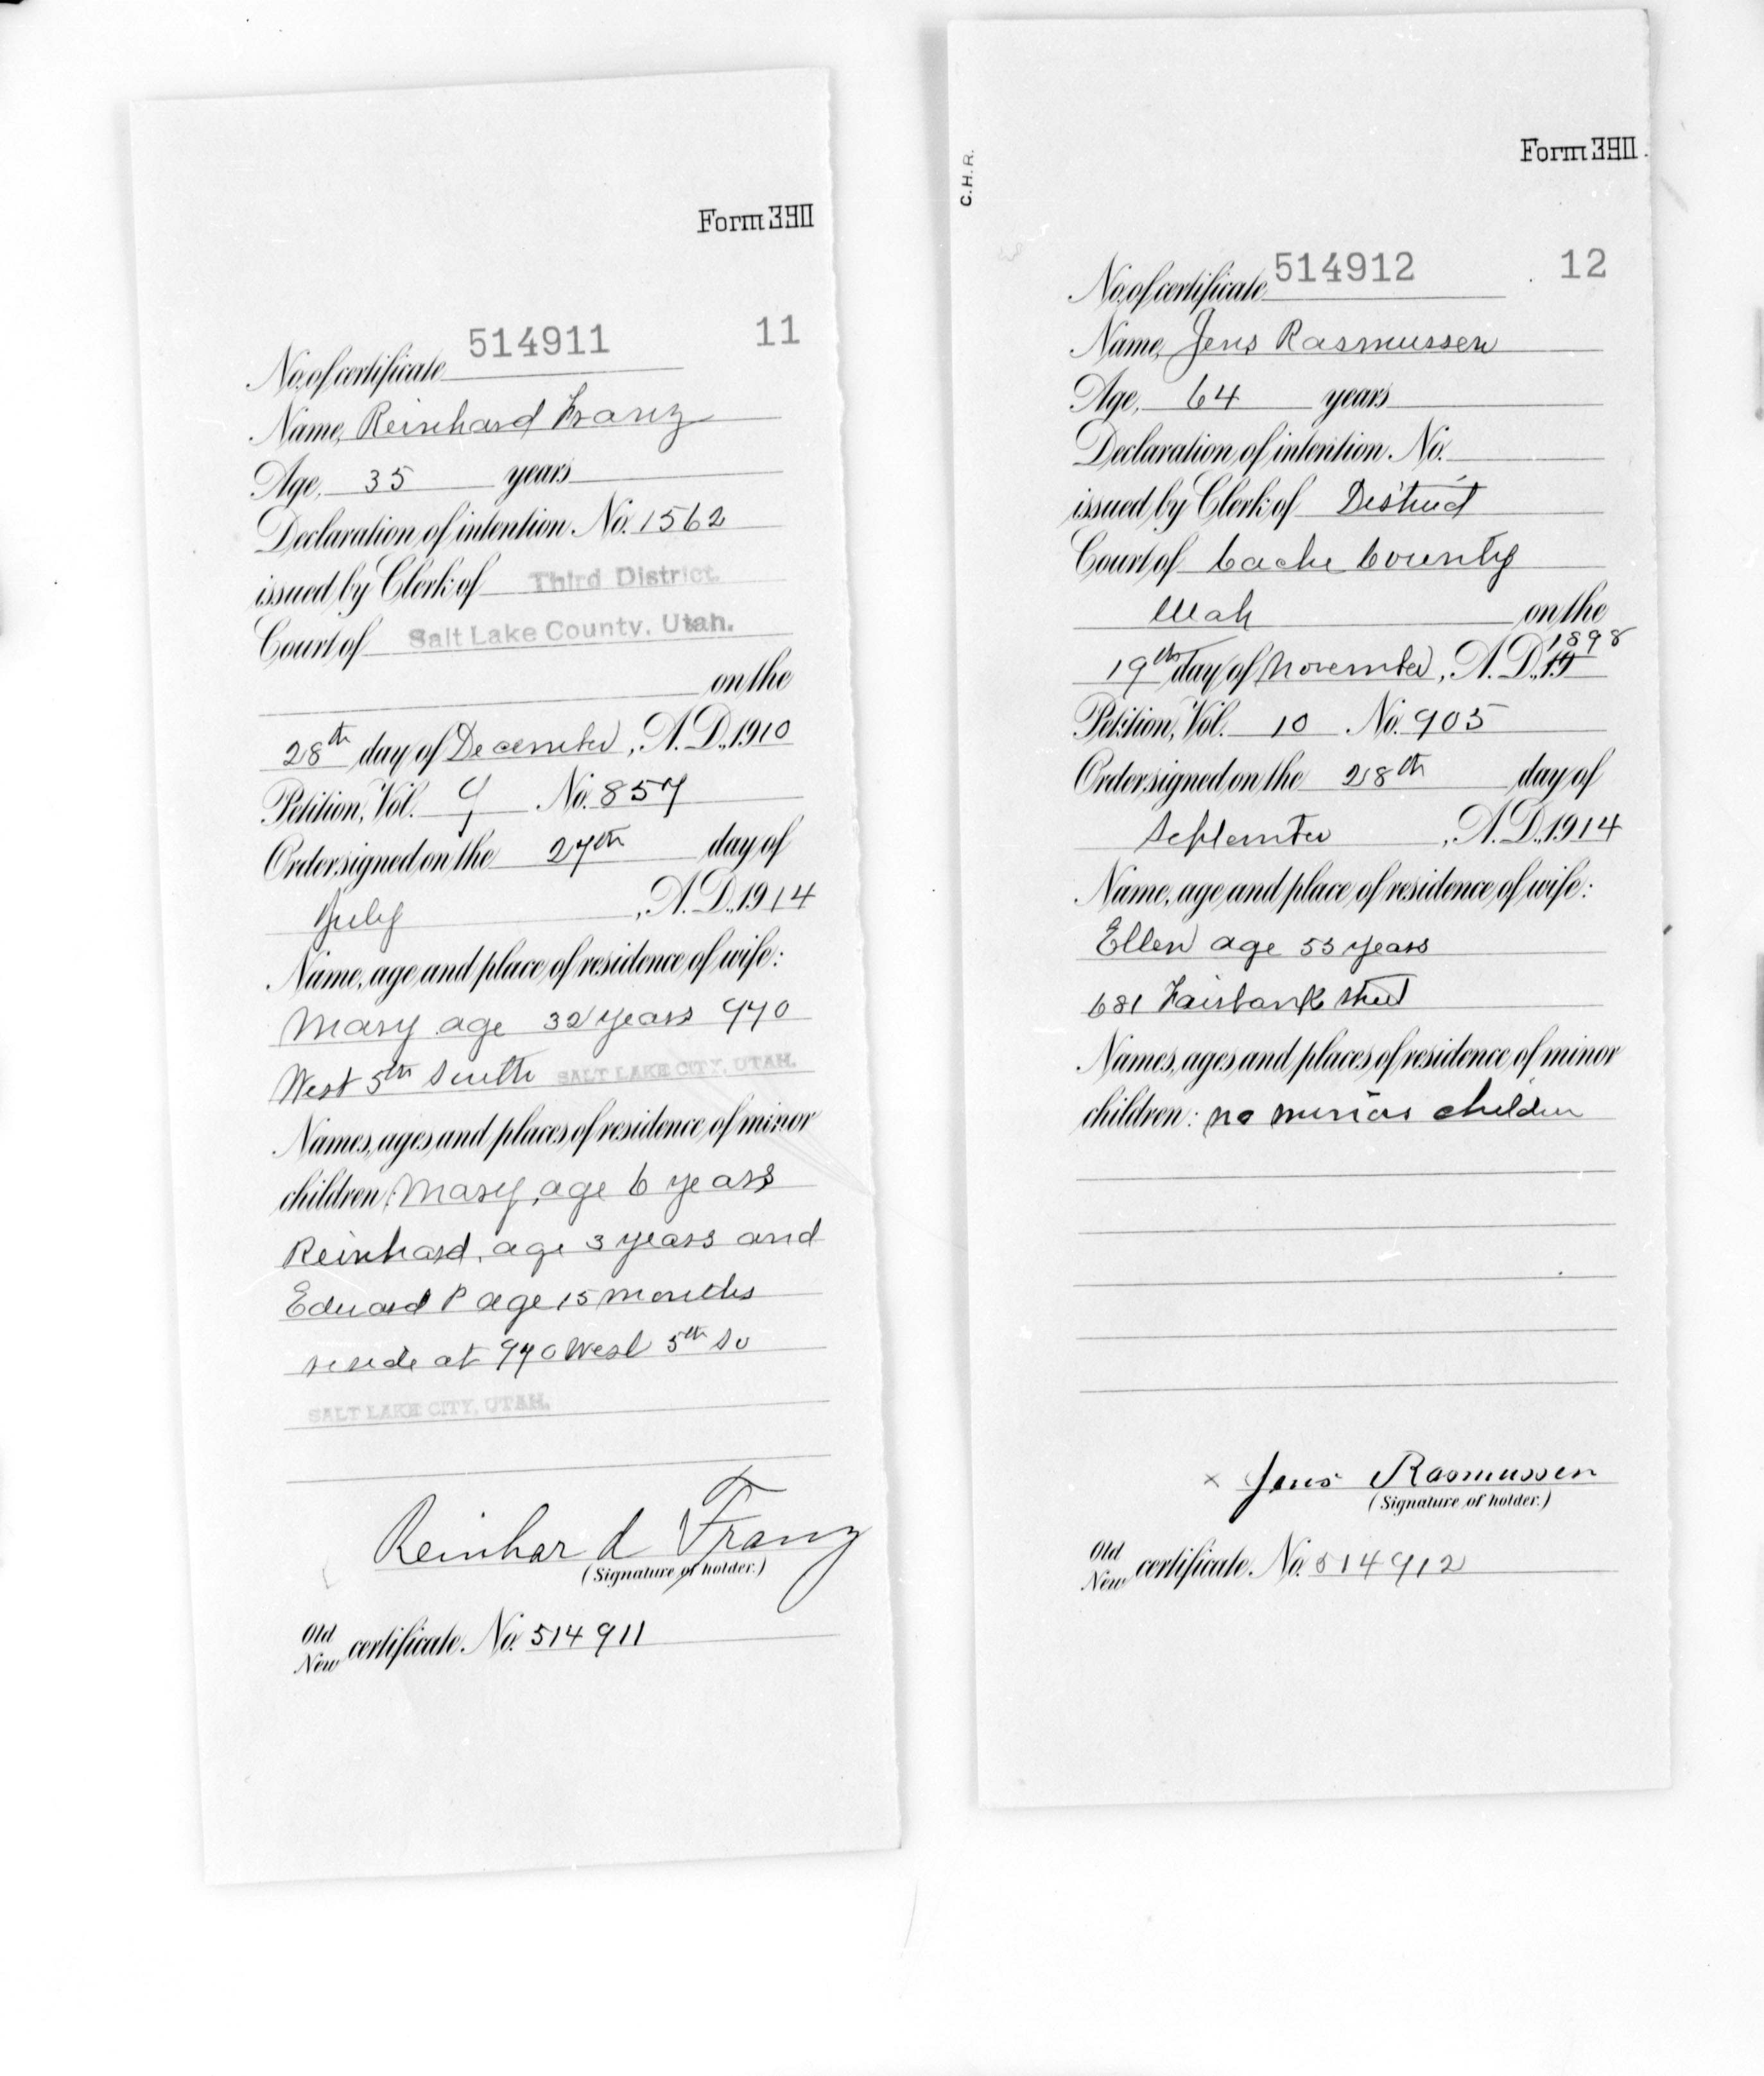 Form 390
514911 11
No. of certificate
Name, Reinhard Franz
Age, 35 years
Declaration of intention No. 1562
issued by Clerk of Third District.
Court of Salt Lake County. Utah.
on the
28th day of December, A.D., 1910
Petition, Vol. 9 No. 857
Order signed on the 27th day of
July, A.D., 1914
Name, age and place of residence of wife:
Mary age 32 years 970
West 5th South SALT LAKE CITY, UTAH.
Names, ages and places of residence of minor
children: Mary, age 6 years
Reinhard, age 3 years and
Eduard P age 15 months
reside at 970 West 5th So
SALT LAKE CITY, UTAH.
Reinhard Franz
(Signature of holder.)
Old
New certificate No. 514911
C.H.R.
Form 390.
No. of certificate 514912 12
Name, Jens Rasmussen
Age, 64 years
Declaration of intention No.
issued by Clerk of District
Court of Cache County
Utah on the
19th day of November, A.D., 19 1898
Petition, Vol. 10 No. 905
Order signed on the 28th day of
September, A.D., 1914
Name, age and place of residence of wife:
Ellen age 53 years
681 Fairbank Street
Names, ages and places of residence of minor
children: no minor children
x Jens Rasmussen
(Signature of holder.)
Old
New certificate No. 514912